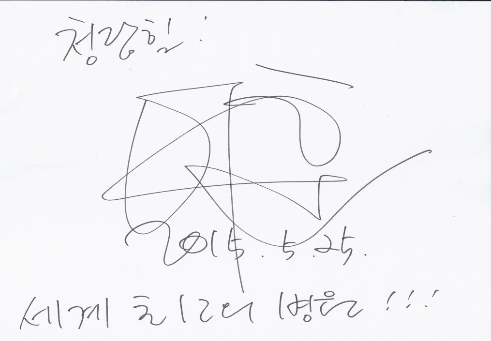 청담힐!
2015. 5. 25.
세계 최고의 병원!!!